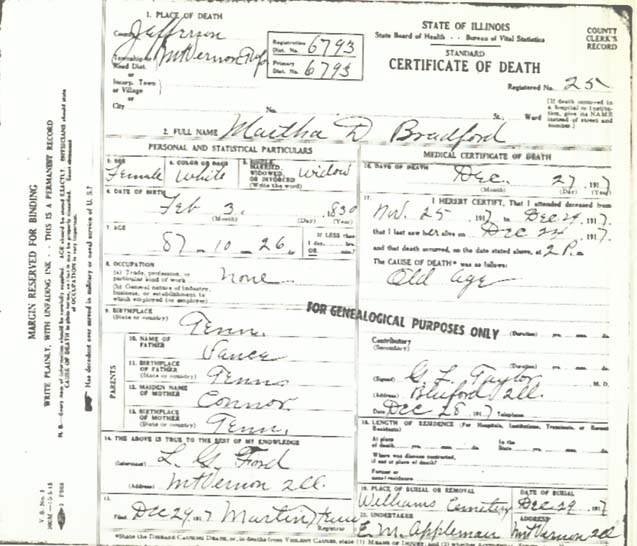 1. PLACE OF DEATH
Jefferson
Registration Dist. No. 6793
Primary Dist. No. 6793
STATE OF ILLINOIS
State Board of Health -- Bureau of Vital Statistics
COUNTY CLERK'S RECORD
STANDARD
CERTIFICATE OF DEATH
Township or Mt Vernon
Road Dist.
or
Incorp. Town
or Village
or
City
No.
St.;
Ward
Registered No. 25
[If death occurred in a hospital or institution, give its NAME instead of street and number.]
2. FULL NAME Martha D Bradford
PERSONAL AND STATISTICAL PARTICULARS
3. SEX Female
4. COLOR OR RACE White
5. SINGLE MARRIED, WIDOWED, OR DIVORCED (Write the word) Widow
6. DATE OF BIRTH
Feb 3, 1830
(Month) (Day) (Year)
7. AGE
87-10-26
IF LESS than
8. OCCUPATION
(a) Trade, profession, or particular kind of work
None
(b) General nature of industry, business, or establishment in which employed (or employer)
9. BIRTHPLACE
(State or country) Tenn.
PARENTS
10. NAME OF FATHER Vance
11. BIRTHPLACE OF FATHER
(State or country) Tenn.
12. MAIDEN NAME OF MOTHER Connor
13. BIRTHPLACE OF MOTHER
(State or country) Tenn.
14. THE ABOVE IS TRUE TO THE BEST OF MY KNOWLEDGE
(Informant) L. G. Ford
(Address) Mt Vernon Ill.
15.
Filed Dec 29, 1917 Martin
Registrar
MEDICAL CERTIFICATE OF DEATH
16. DATE OF DEATH
Dec. 27 1917
(Month) (Day) (Year)
17. I HEREBY CERTIFY, That I attended deceased from
Nov. 25 1917, to Dec 29, 1917
that I last saw her alive on Dec 24 1917,
and that death occurred, on the date stated above, at 2 P. m.
The CAUSE OF DEATH* was as follows:
Old age
FOR GENEALOGICAL PURPOSES ONLY
(Duration) yrs. mos. ds.
Contributory
(Secondary)
(Duration) yrs. mos. ds.
(Signed) G. F. Taylor M. D.
(Address) Bluford Ill.
Date Dec 28, 1917 Telephone
18. LENGTH OF RESIDENCE (For Hospitals, Institutions, Transients, or Recent Residents)
At place of death yrs. mos. ds.
In the State yrs. mos. ds.
Where was disease contracted, if not at place of death?
Former or usual residence
19. PLACE OF BURIAL OR REMOVAL
Williams Cemetery
DATE OF BURIAL
Dec-29 1917
20. UNDERTAKER
E. M. Appleman
ADDRESS
Mt Vernon Ill
MARGIN RESERVED FOR BINDING
WRITE PLAINLY, WITH UNFADING INK -- THIS IS A PERMANENT RECORD
Has decedent ever served in military or naval service of U. S.?